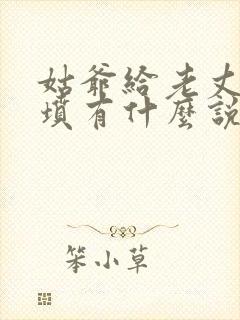 姑爺給老丈
墳有什麼說
笨小草